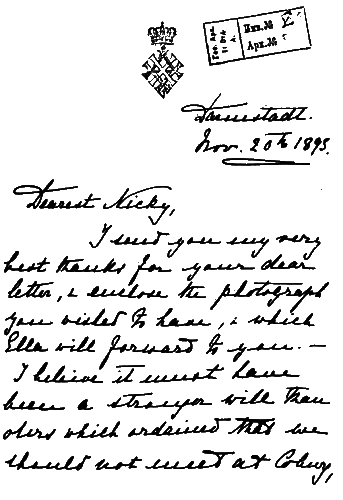 Darmstadt.
Nov. 20th 1893.
Dearest Nicky,
I send you my very
best thanks for your dear
letter, & enclose the photograph
you wished to have, & which
Ella will forward to you. –
I believe it must have
been a stronger will than
ours which ordained that we
should not meet at Coburg,